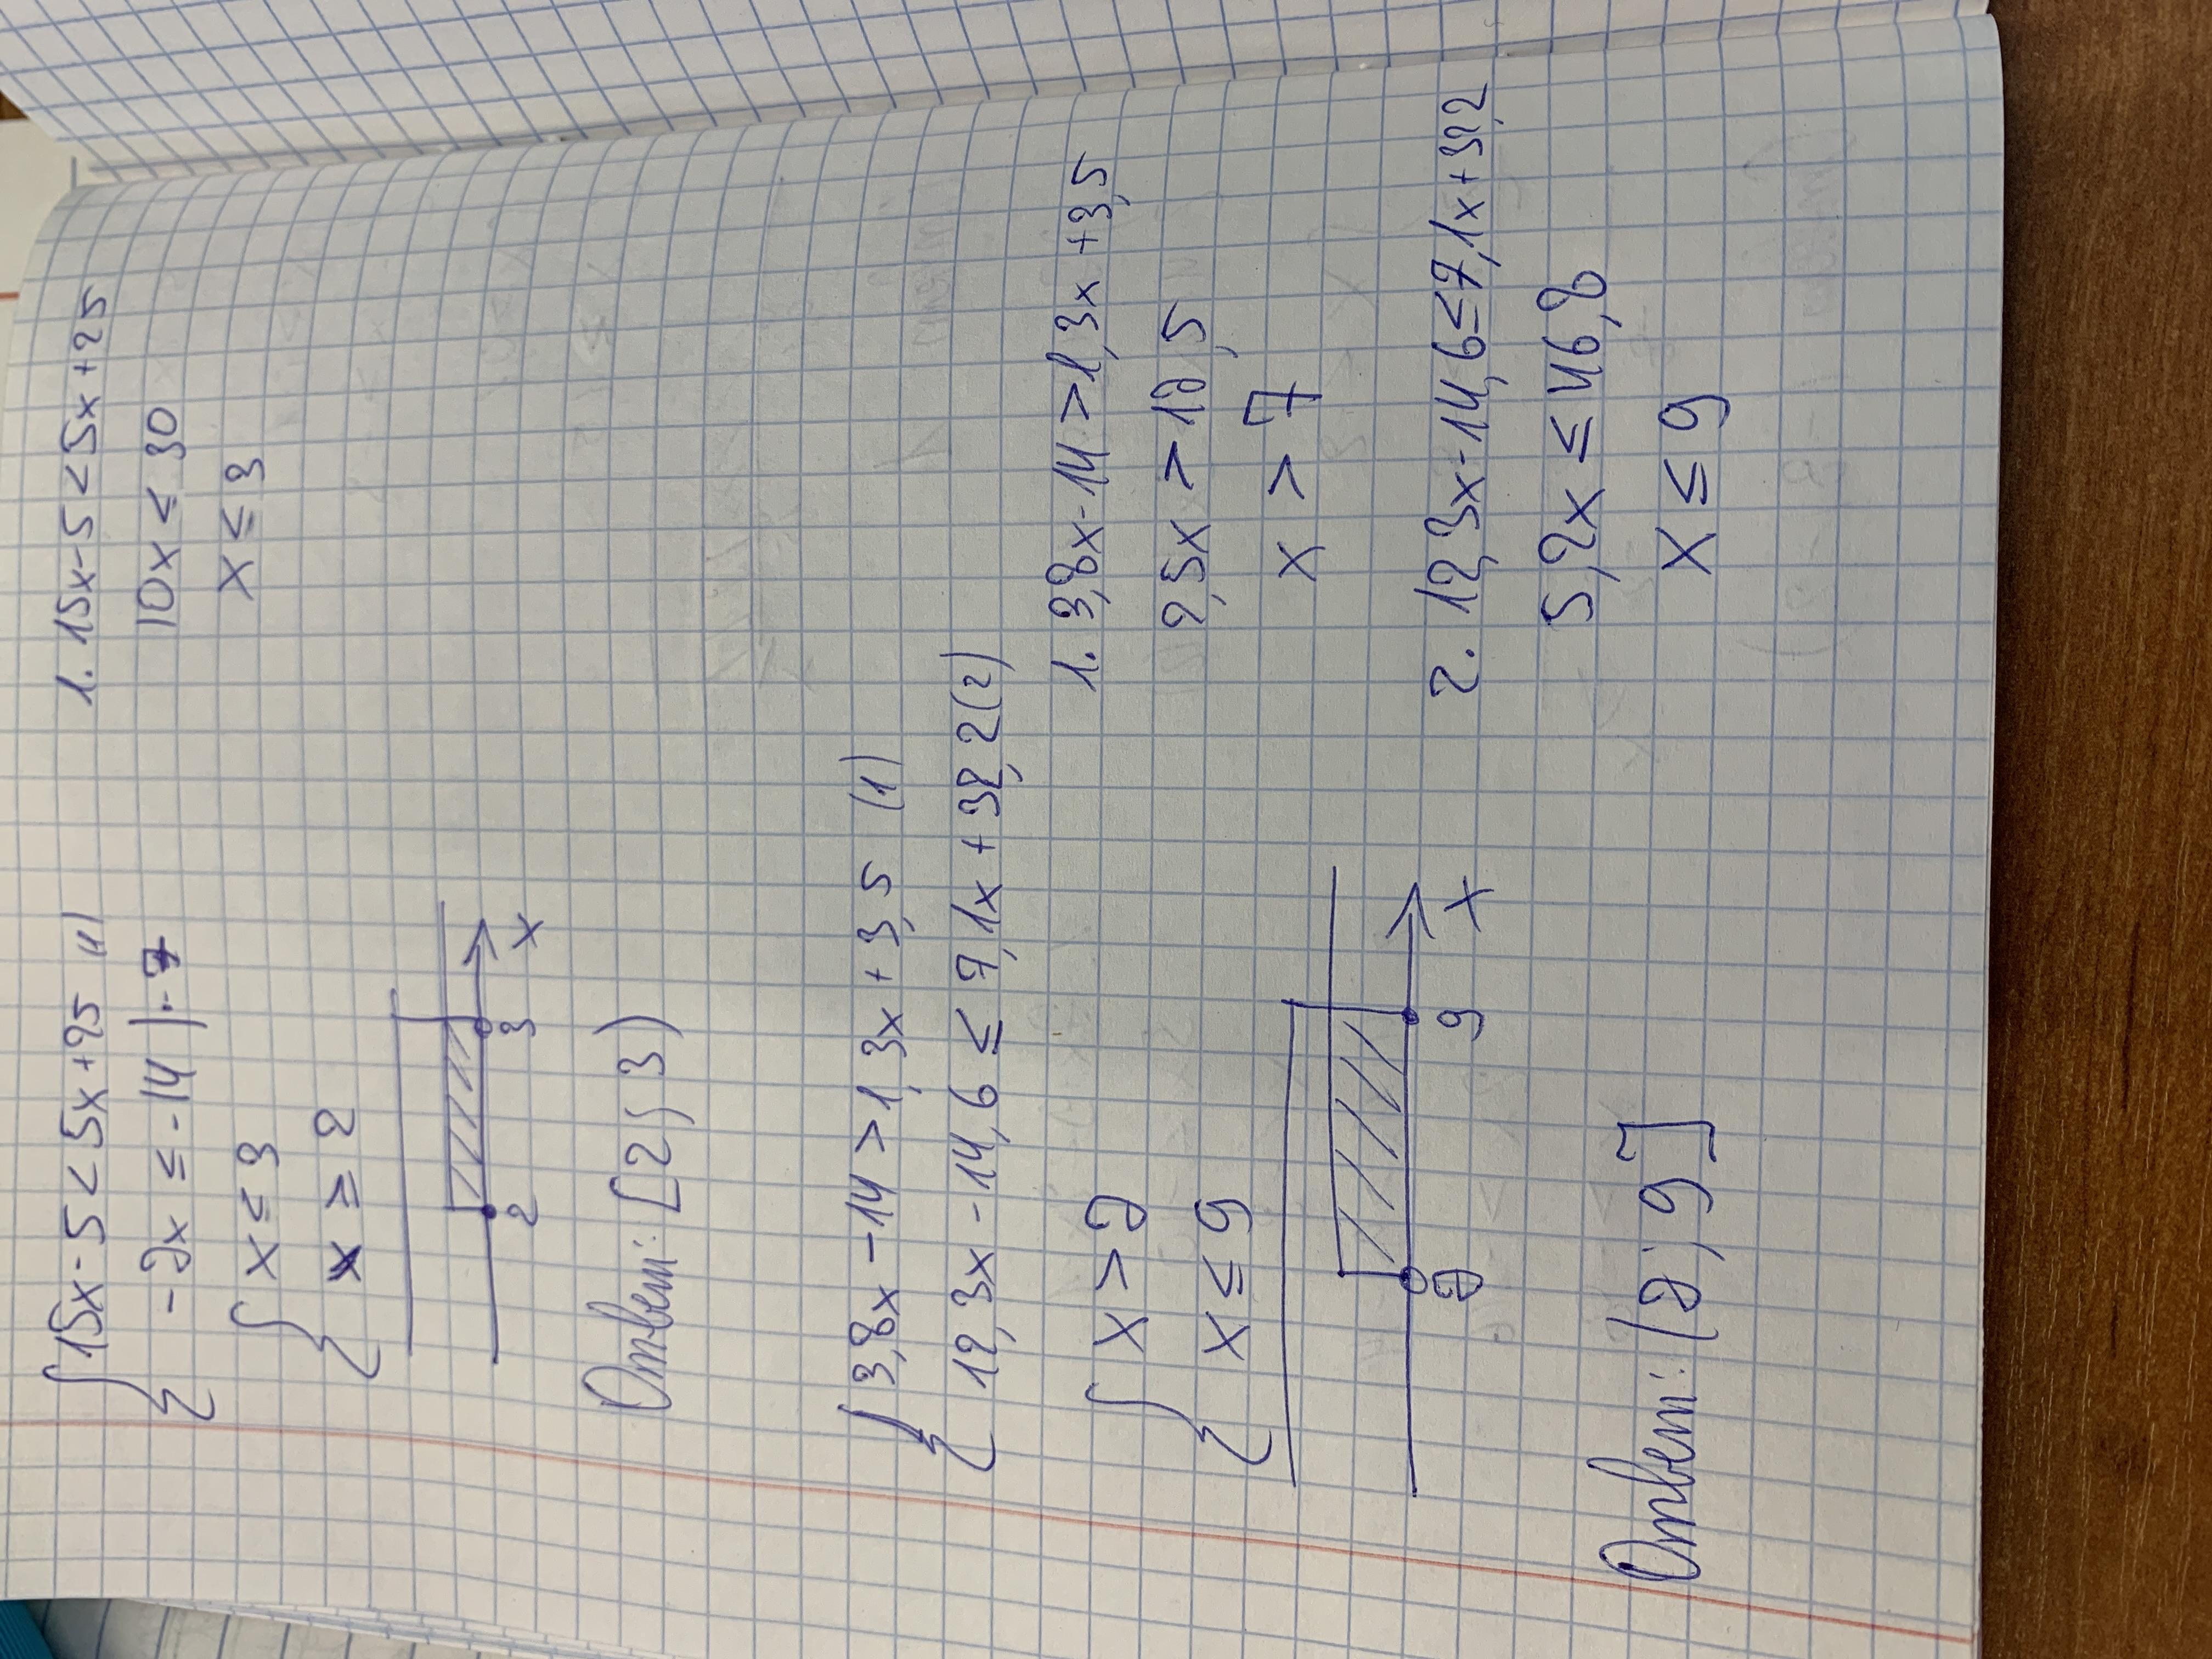 { 15x - 5 < 5x + 25 (1)
-2x ≤ -14 | · 7
{ x ≤ 3
x ≥ 2
2 3 x
Ответ: [2; 3)
1. 15x - 5 < 5x + 25
10x ≤ 30
x ≤ 3
{ 3,8x - 14 > 1,3x + 3,5 (1)
12,3x - 14,6 ≤ 7,1x + 32,2 (2)
{ x > 2
x ≤ 9
2 9 x
Ответ: (2; 9]
1. 3,8x - 14 > 1,3x + 3,5
2,5x > 12,5
x > 7
2. 12,3x - 14,6 ≤ 7,1x + 32,2
5,2x ≤ 46,8
x ≤ 9